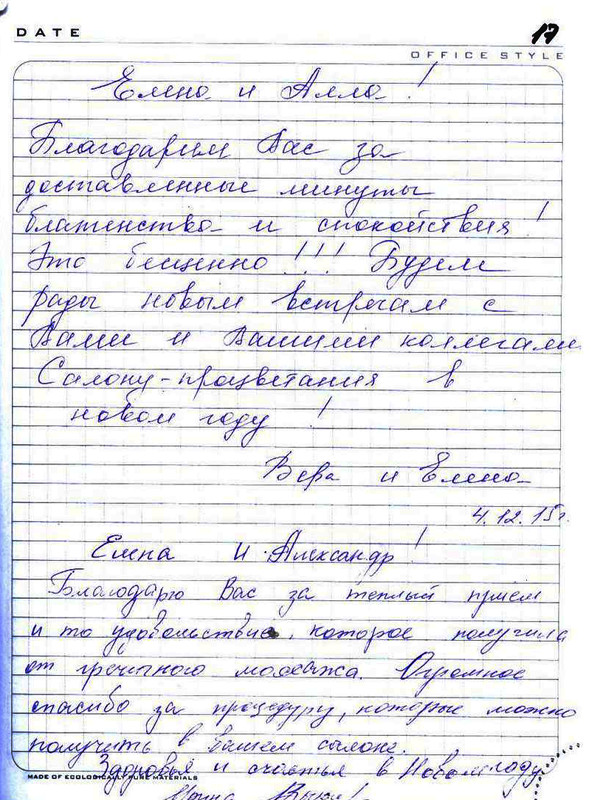 DATE
17
OFFICE STYLE
Елена и Алла !
Благодарим Вас за
доставленные минуты
блаженства и спокойствия !
Это бесценно !!! Будем
рады новым встречам с
Вами и Вашими коллегами
Салону - процветания в
новом году !
Вера и Елена
4.12.15г.
Елена и Александр !
Благодарю Вас за теплый приём
и то удовольствие, которое получила
от греческого массажа. Огромное
спасибо за процедуру, которые можно
получить в вашем салоне.
Здоровья и счастья в Новом году
MADE OF ECOLOGICALLY PURE MATERIALS